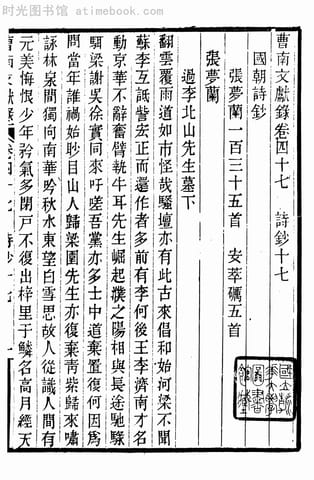 时光图书馆 atimebook.com
曹南文獻錄卷四十七　詩鈔十七
國朝詩鈔
張夢蘭一百三十五首　安莘礪五首
張夢蘭
過李北山先生墓下
翻雲覆雨道如市怪哉騷壇亦有此古來倡和始河梁不聞
蘇李互詆訾宏正而還作者多前有李何後王李濟南才名
動京華不辭奮臂執牛耳先生崛起濮之陽相與長途馳騄
駬梁謝吳徐實同來吁嗟吾黨亦多士中道棄置復何因爲
問當年誰禍始眇目山人歸梁園先生亦復棄青紫歸來嘯
詠林泉間獨向南華吟秋水東望白雪思故人從識人間有
元美悔恨少年矜氣多閉戸不復出梓里于鱗名高月經天
曹南文獻錄　卷四十七　詩鈔十七　一